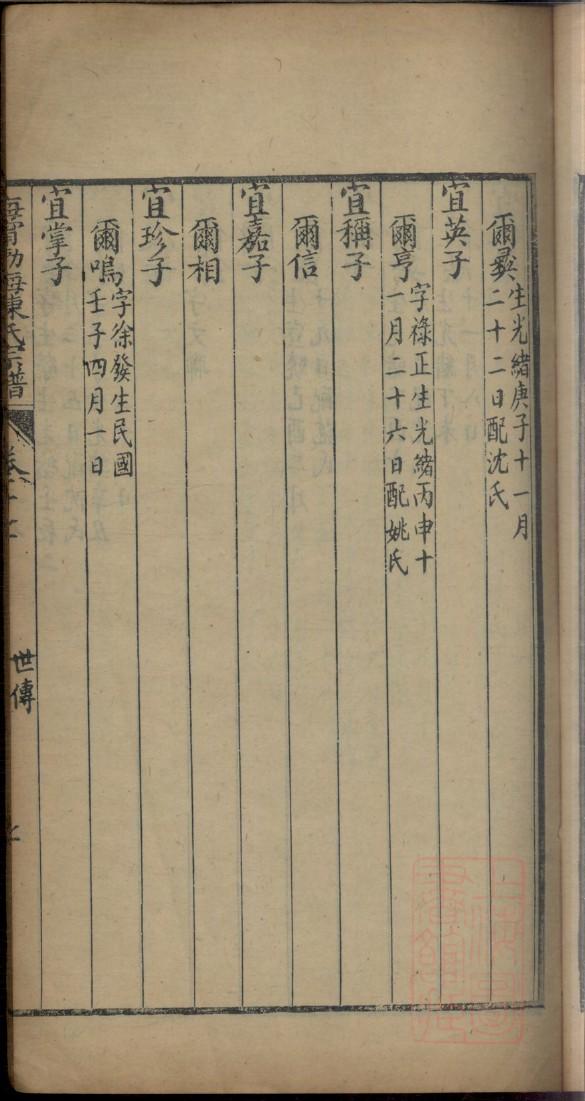 爾彝 生光緒庚子十一月
二十二日配沈氏
宜英子
爾亨 字祿正生光緒丙申十
一月二十六日配姚氏
宜稱子
爾信
宜嘉子
爾相
宜珍子
爾鳴 字徐發生民國
壬子四月一日
宜掌子
海甯渤海陳氏宗譜 卷十七 世傳